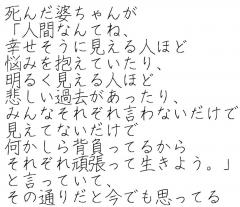 死んだ婆ちゃんが
「人間なんてね、
幸せそうに見える人ほど
悩みを抱えていたり、
明るく見える人ほど
悲しい過去があったり、
みんなそれぞれ言わないだけで
見えてないだけで
何かしら背負ってるから
それぞれ頑張って生きよう。」
と言っていて、
その通りだと今でも思ってる